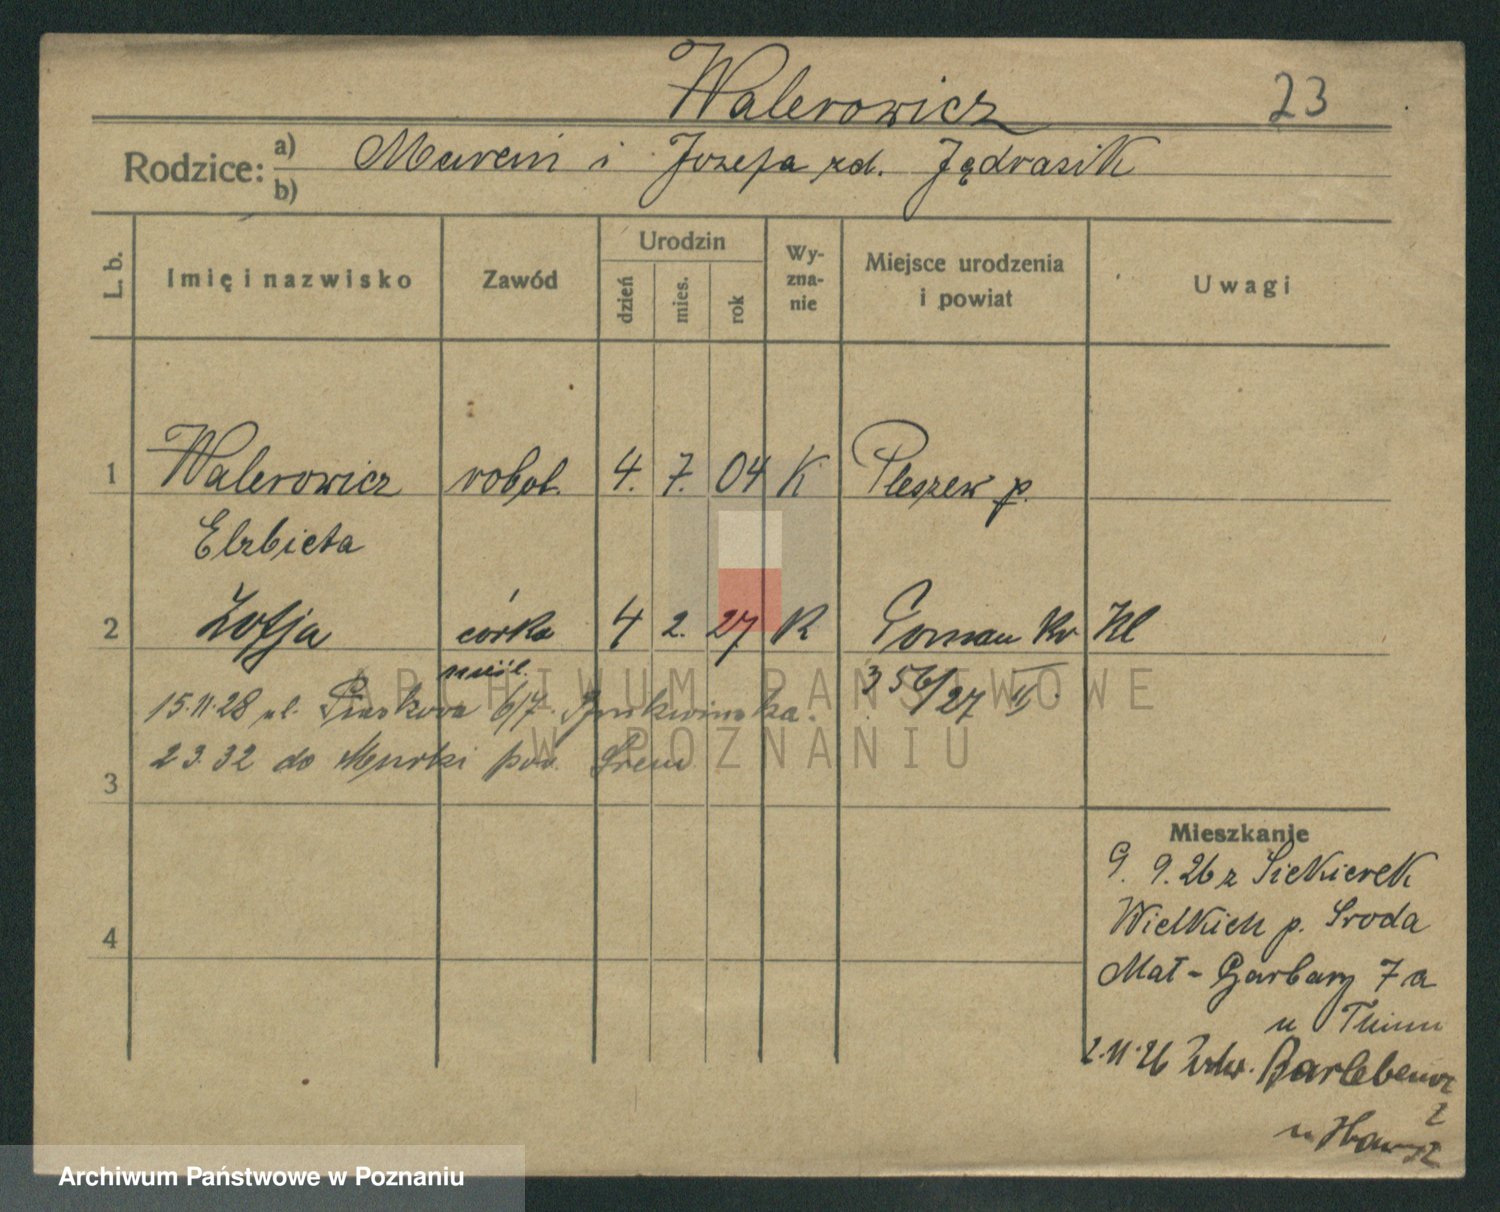 Walerowicz 23
Rodzice: a) Marcin i Józefa zd. Jędrasik
b)
L. b. Imię i nazwisko Zawód Urodzin dzień mies. rok Wyznanie Miejsce urodzenia i powiat Uwagi
1 Walerowicz robot. 4. 7. 04 K Pleszew p.
Elzbieta
2 Zofja córka 4 2. 27 K Poznan Kl
nieśl. 356/27 II
15.11.28 ul. Piaskowa 6/7
2 3. 32 do Murki pow. Śrem
3
Mieszkanie
9. 9. 26 z Siekierek
Wielkich p. Sroda
4
Mał-Garbary 7a
u
2.11.26
u
ARCHIWUM PAŃSTWOWE
W POZNANIU
Archiwum Państwowe w Poznaniu